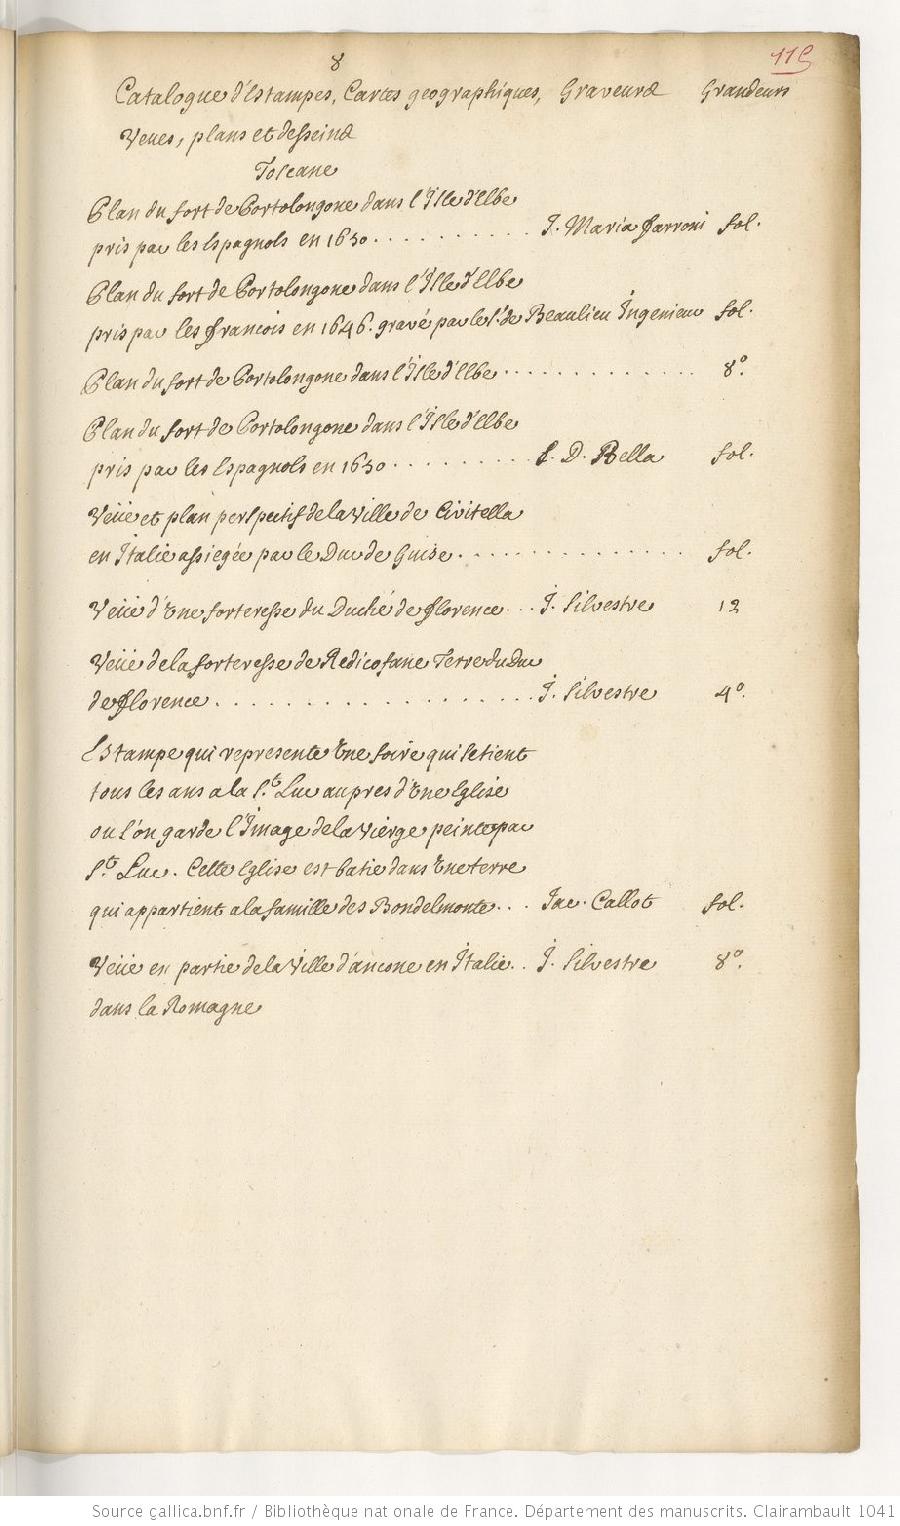 8
115
Catalogue d'Estampes, Cartes geographiques, Graveurs Grandeurs
Veues, plans et desseins
Toscane
Plan du fort de Portolongone dans l'Isle d'Elbe
pris par les Espagnols en 1650 . . . . . . . . . . J. Maria Jarroni fol.
Plan du fort de Portolongone dans l'Isle d'Elbe
pris par les francois en 1646. gravé par le Sr. de Beaulieu Ingenieur fol.
Plan du fort de Portolongone dans l'Isle d'Elbe . . . . . . . . . . . . . 8º.
Plan du fort de Portolongone dans l'Isle d'Elbe
pris par les Espagnols en 1650 . . . . . . . . . E. D. Bella fol.
Veüe et plan perspectif de la Ville de Civitella
en Italie assiegée par le Duc de Guise . . . . . . . . . . . . . . fol.
Veüe d'Une forteresse du Duché de florence . . . J. Silvestre 12
Veüe de la forteresse de Redicofane Terre du Duc
de florence . . . . . . . . . . . . . . . . . . . J. Silvestre 4º.
Estampe qui represente Une foire qui se tient
tous les ans a la St. Luc aupres d'Une Eglise
ou l'on garde l'Image de la Vierge peinte par
St. Luc. Cette Eglise est batie dans Une terre
qui appartient a la famille des Bondelmonte . . . Jac. Callot fol.
Veüe en partie de la Ville d'ancone en Italie . . J. Silvestre 8º.
dans la Romagne
Source gallica.bnf.fr / Bibliothèque nationale de France. Département des manuscrits. Clairambault 1041